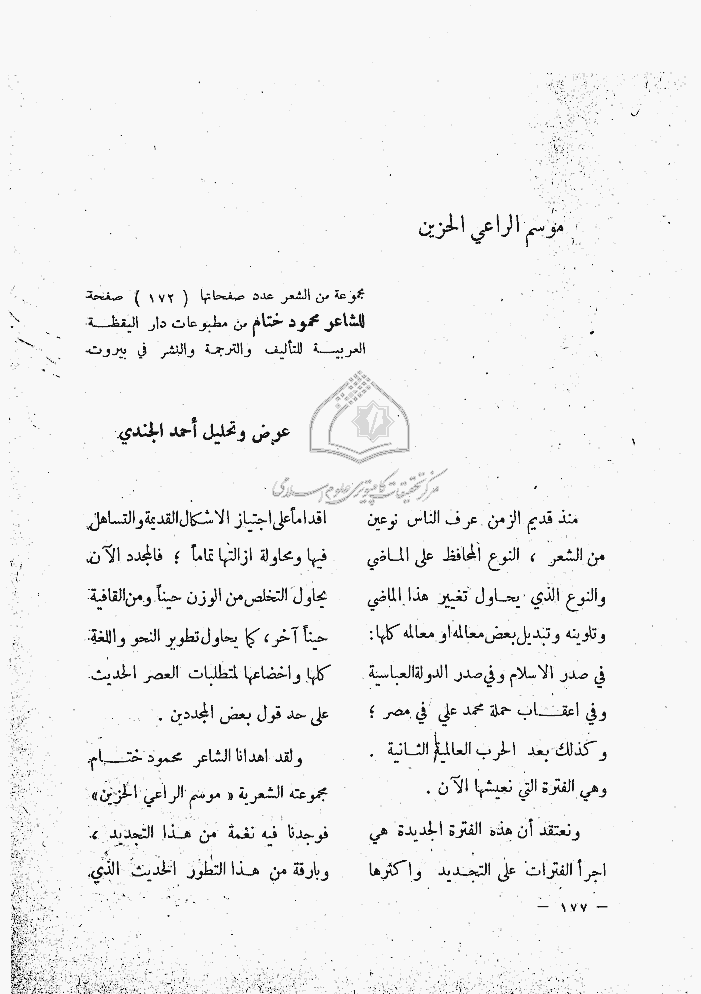 موسم الراعي الحزين
مجموعة من الشعر عدد صفحاتها ( ١٧٢ ) صفحة
للشاعر محمود ختام من مطبوعات دار اليقظـــة
العربيـــة للتأليف والترجمة والنشر في بيروت
عرض وتحليل أحمد الجندي
مركز تحقيقات كامپيوتري علوم اسلامي
منذ قديم الزمن عرف الناس نوعين
من الشعر ، النوع المحافظ على المـاضي
والنوع الذي يحـاول تغيير هذا الماضي
وتلوينه وتبديل بعض معالمه او معالمه كلها:
في صدر الاسلام وفي صدر الدولة العباسية
وفي اعقـــاب حملة محمد علي في مصر ؛
وكذلك بعد الحرب العالمية الثـانية .
وهي الفترة التي نعيشها الآن .
ونعتقد أن هذه الفترة الجديدة هي
اجرأ الفترات على التجـديد واكثرها
اقداماً على اجتياز الاشكال القديمة والتساهل
فيها ومحاولة ازالتها تماماً ؛ فالمجدد الآن
يحاول التخلص من الوزن حيناً ومن القافية
حيناً آخر ، كما يحاول تطوير النحو واللغة
كلها واخضاعها لمتطلبات العصر الحديث
على حد قول بعض المجددين .
ولقد اهدانا الشاعر محمود ختـــام
مجموعته الشعرية « موسم الراعي الحزين»
فوجدنا فيه نغمة من هـذا التجديد ،
وبارقة من هـذا التطور الحديث الذي
— ١٧٧ —